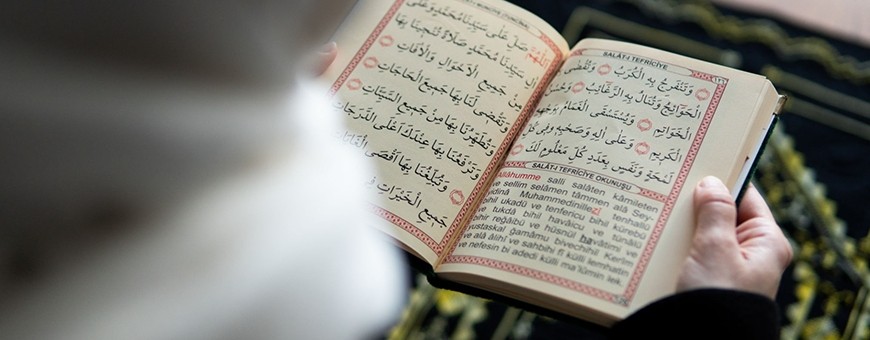 اَللّٰهُمَّ صَلِّ عَلٰى سَيِّدِنَا مُحَمَّدٍ وَعَلٰى
اٰلِ سَيِّدِنَا مُحَمَّدٍ صَلَاةً تُنْجِينَا بِهَا
مِنْ جَمِيعِ الْاَحْوَالِ وَالْاٰفَاتِ
وَتَقْضِى لَنَا بِهَا جَمِيعَ الْحَاجَاتِ
وَتُطَهِّرُنَا بِهَا مِنْ جَمِيعِ السَّيِّئَاتِ
وَتَرْفَعُنَا بِهَا عِنْدَكَ اَعْلَى الدَّرَجَاتِ
وَتُبَلِّغُنَا بِهَا اَقْصَى
جَمِيعِ الْخَيْرَاتِ فِى
SALÂT-I TEFRİCİYE
وَتَنْفَرِجُ بِهِ الْكُرَبُ وَتُقْضٰى
بِهِ الْحَوَائِجُ وَتُنَالُ بِهِ الرَّغَائِبُ وَحُسْنُ
الْخَوَاتِمِ وَيُسْتَسْقَى الْغَمَامُ بِوَجْهِهِ
الْكَرِيمِ وَعَلٰى اٰلِهِ وَصَحْبِهِ فِى كُلِّ
لَمْحَةٍ وَنَفَسٍ بِعَدَدِ كُلِّ مَعْلُومٍ لَكَ
SALÂT-I TEFRİCİYE OKUNUŞU
llâhumme salli salâten kâmileten
ve sellim selâmen tâmmen alâ Sey-
yidinâ Muhammedinillezi tenhallü
bihil ukadü ve tenfericu bihil kürebü
ve tukdâ bihil havâicu ve tünâlü
bihir reğâibü ve hüsnül havâtimi ve
yustaskal ğamâmu bivechihil Kerîm
ve alâ âlihî ve sahbihî fî külli lemhatin
ve nefesin bi adedi külli ma'lûmin lek.